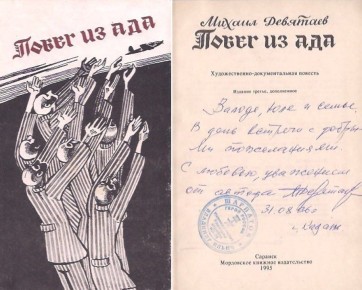 Побег из ада
Михаил Девятаев
Побег из ада
Художественно-документальная повесть
Издание третье, дополненное
и семье.
В день встречи с добры-
ми пожеланиями.
С любовью, уважением
от автора
31.08.
г. Казань
Саранск
Мордовское книжное издательство
1995